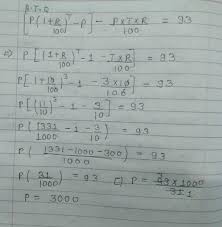 A.T.Q
[P(1+R/100)^T - P] - P×T×R/100 = 93
⇒ P[(1+R/100)^T - 1 - T×R/100] = 93
P[(1+10/100)^3 - 1 - 3×10/100] = 93
P[(11/10)^3 - 1 - 3/10] = 93
P(1331/1000 - 1 - 3/10) = 93
P(1331-1000-300/1000) = 93
P(31/1000) = 93 P = 93×1000/31
P = 3000